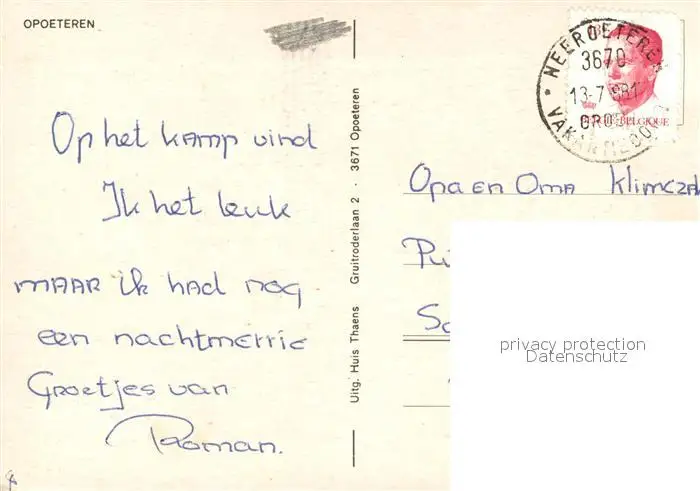 OPOETEREN
Op het kamp vind
Ik het leuk
MAAR ik had nog
een nachtmerrie
Groetjes van
Roman.
Uitg. Huis Thaens Gruitroderlaan 2 - 3671 Opoeteren
NEEROETEREN
3670
13-7
BELGIQUE
Opa en Oma Klimcza
privacy protection
Datenschutz